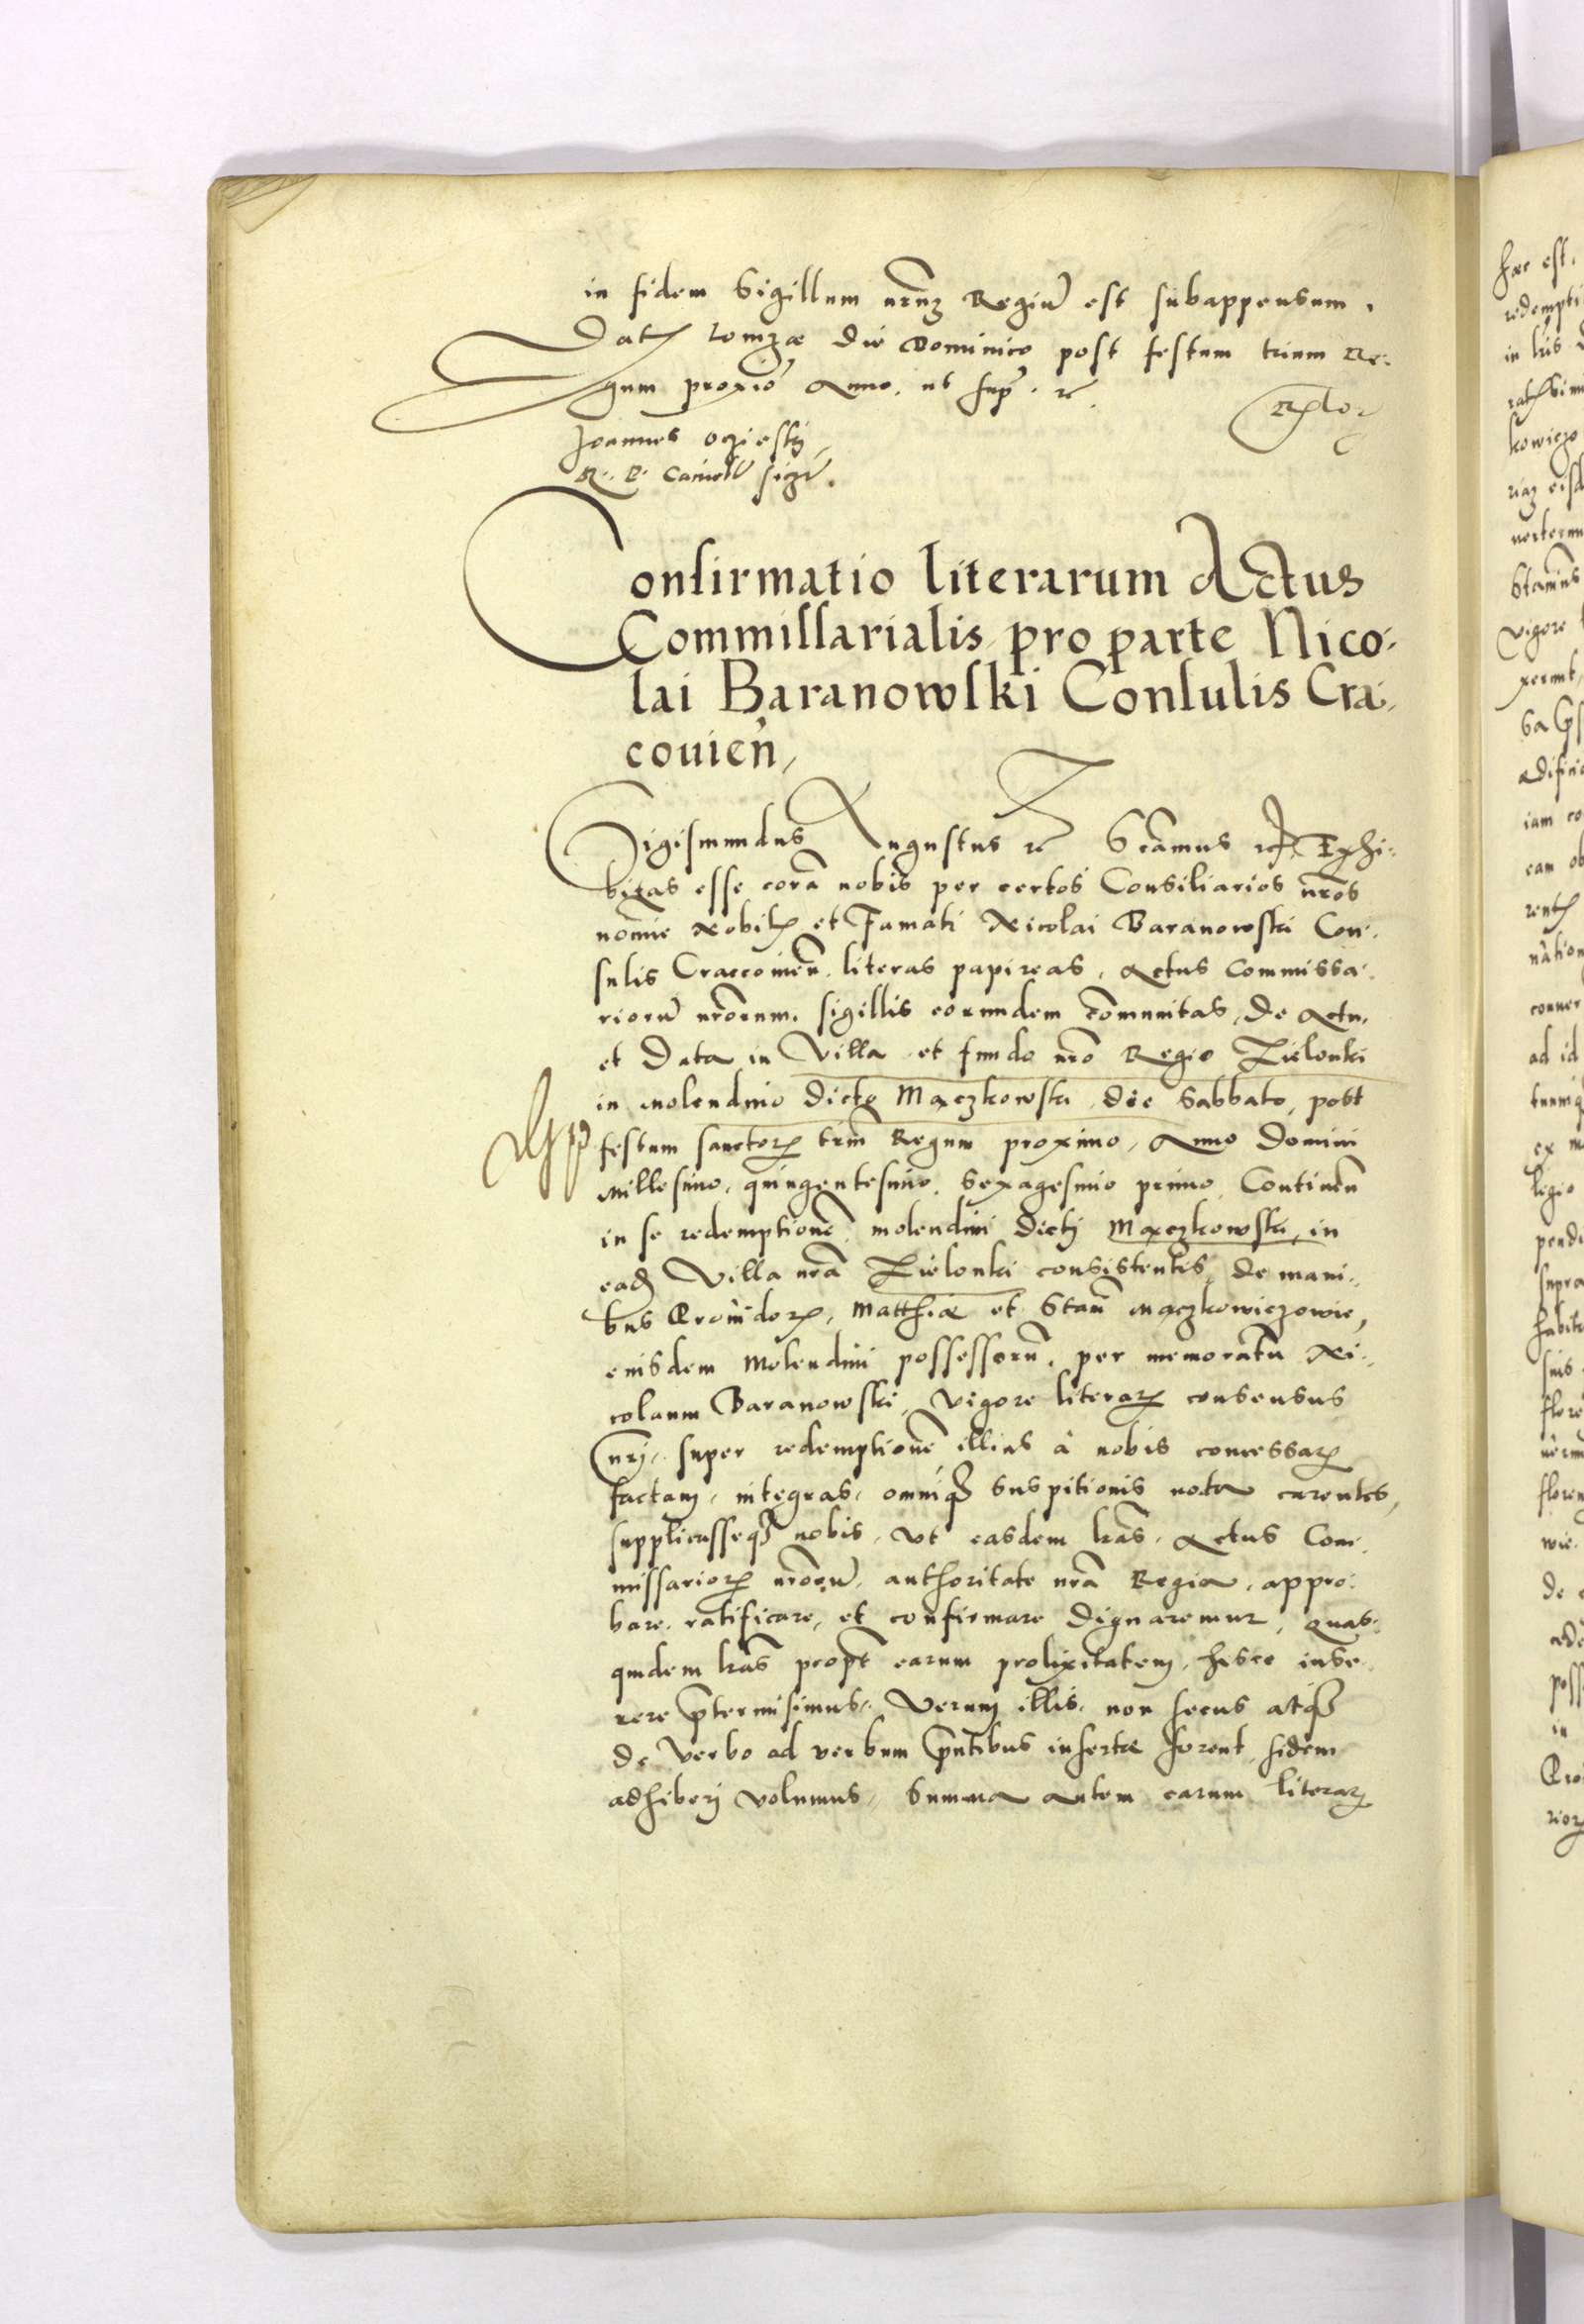 in fidem Sigillum nrũz Regiũ est subappensum.
Datȩ Lomzæ Die Dominico post festum trium Re-
gum proxiõ Anno. ut sup. rc
Joannes Ocziesky
R. P. Cancell̃ sszt.
Confirmatio literarum Actus
Commissarialis pro parte Nico-
lai Baranowski Consulis Cra-
couień,
Sigismundus Augustus rc Scãmus rc Exhi-
bitas esse corã nobis per certos Consiliarios nrõs
noĩe Nobilȩ et Famati Nicolai Baranowski Con-
sulis Craccouieñ. literas papireas, Actus Commissa-
riorũ nrõrum. sigillis eorundem cõmunitas, De Actu.
et Data in Villa et fundo nrõ Regio Zielonki
in molendino dicto Mączkowski die Sabbato, post
festum sanctorꝝ triũ Regum proximo, Anno Domini
Millesimo, quingentesimo, Sexagesimo primo, Continẽn
in se redemptionẽ molendini dictj Mączkowski, in
eadꝫ Villa nrã Zielonki consistentis, de mani-
bus Prouidorꝝ, Matthiæ et Stañ Mączkowiczowie,
eiusdem Molendini possessorũ, per memoratũ Ni-
colaum Baranowski, vigore literarꝝ consensus
nrj, super redemptionẽ illius à nobis concessarꝝ
factam, integras, omniqꝫ suspitionis nota carentes,
supplicasseqꝫ nobis, vt easdem lrãs, Actus Com-
missariorꝝ nrõrũ, authoritate nrã Regia, appro-
bare, ratificare, et confirmare dignaremur, quas-
quidem lrãs propt̃ earum prolixitatem, hisce inse-
rere p̃termisimus, Verum illis, non secus atqꝫ
de verbo ad verbum p̃ntibus insertæ forent, fidem
adhiberj volumus, Summa autem earum literarꝝ